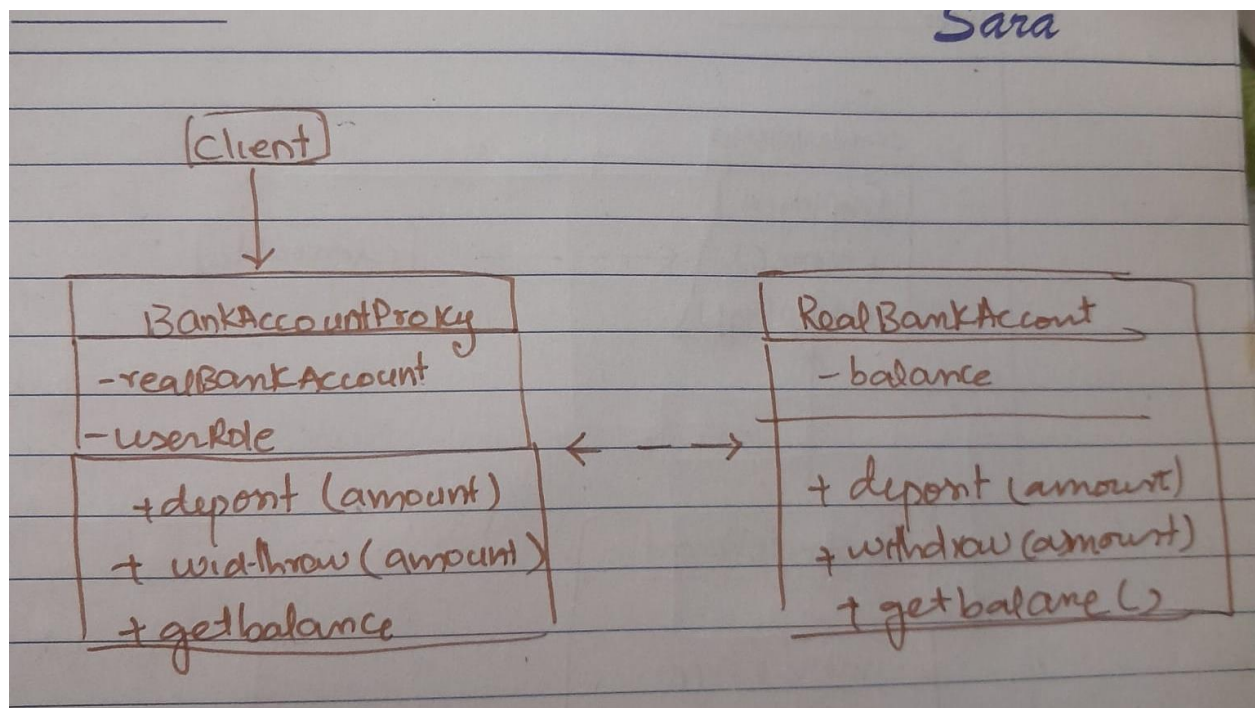 Sara
Client
BankAccountProxy
-realBankAccount
-userRole
+deposit (amount)
+ widthraw (amount)
+ getbalance
RealBankAccont
-balance
+ deposit (amount)
+ withdraw (amount)
+ getbalane ()